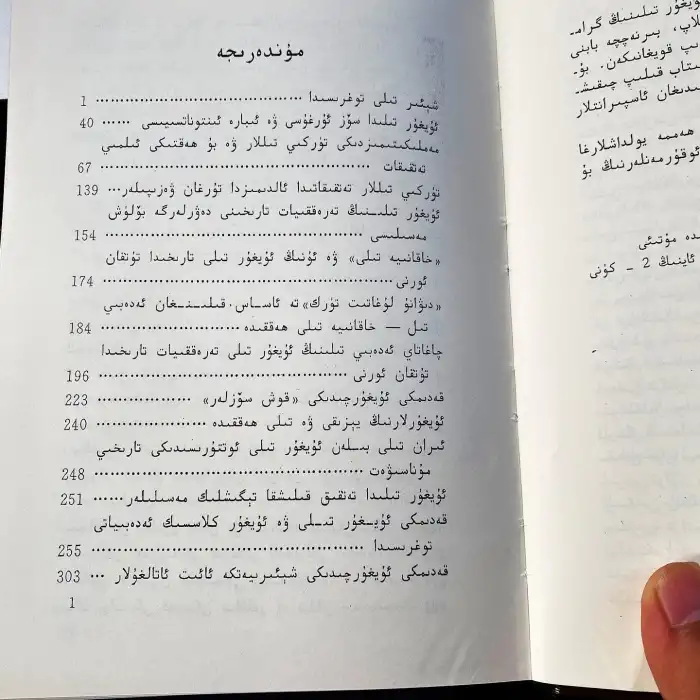 مۇندەرىجە
شېئىر تىلى توغرىسىدا ........................................ 1
ئۇيغۇر تىلىدا سۆز ئۇرغۇسى ۋە ئىبارە ئىنتوناتسىيىسى ...... 40
مەملىكىتىمىزدىكى تۈركىي تىللار ۋە بۇ ھەقتىكى ئىلمىي
تەتقىقات ........................................ 67
تۈركىي تىللار تەتقىقاتىدا ئالدىمىزدا تۇرغان ۋەزىپىلەر... 139
ئۇيغۇر تىلىنىڭ تەرەققىيات تارىخىنى دەۋرلەرگە بۆلۈش
مەسىلىسى ........................................ 154
«خاقانىيە تىلى» ۋە ئۇنىڭ ئۇيغۇر تىلى تارىخىدا تۇتقان
ئورنى ........................................ 174
«دىۋانۇ لۇغاتىت تۈرك» تە ئاساس قىلىنغان ئەدەبىي
تىل — خاقانىيە تىلى ھەققىدە ........................ 184
چاغاتاي ئەدەبىي تىلىنىڭ ئۇيغۇر تىلى تەرەققىيات تارىخىدا
تۇتقان ئورنى ........................................ 196
قەدىمكى ئۇيغۇرچىدىكى «قوش سۆزلەر» .................. 223
ئۇيغۇرلارنىڭ يېزىقى ۋە تىلى ھەققىدە .................. 240
ئىران تىلى بىلەن ئۇيغۇر تىلى ئوتتۇرىسىدىكى تارىخىي
مۇناسىۋەت ........................................ 248
ئۇيغۇر تىلىدا تەتقىق قىلىشقا تېگىشلىك مەسىلىلەر...... 251
قەدىمكى ئۇيغۇر تىلى ۋە ئۇيغۇر كلاسسىك ئەدەبىياتى
توغرىسىدا ........................................ 255
قەدىمكى ئۇيغۇرچىدىكى شېئىرىيەتكە ئائىت ئاتالغۇلار ... 303
1
ئۇيغۇر تىلىنىڭ گرام-
بىرنەچچە بابنى
قويغانىكەن. بۇ-
قىلىپ چىقىش-
ئاسپىرانتلار
ھەممە يولداشلارغا
ئوقۇرمەنلەرنىڭ بۇ
مۇتىئى
ئاينىڭ 2 - كۈنى